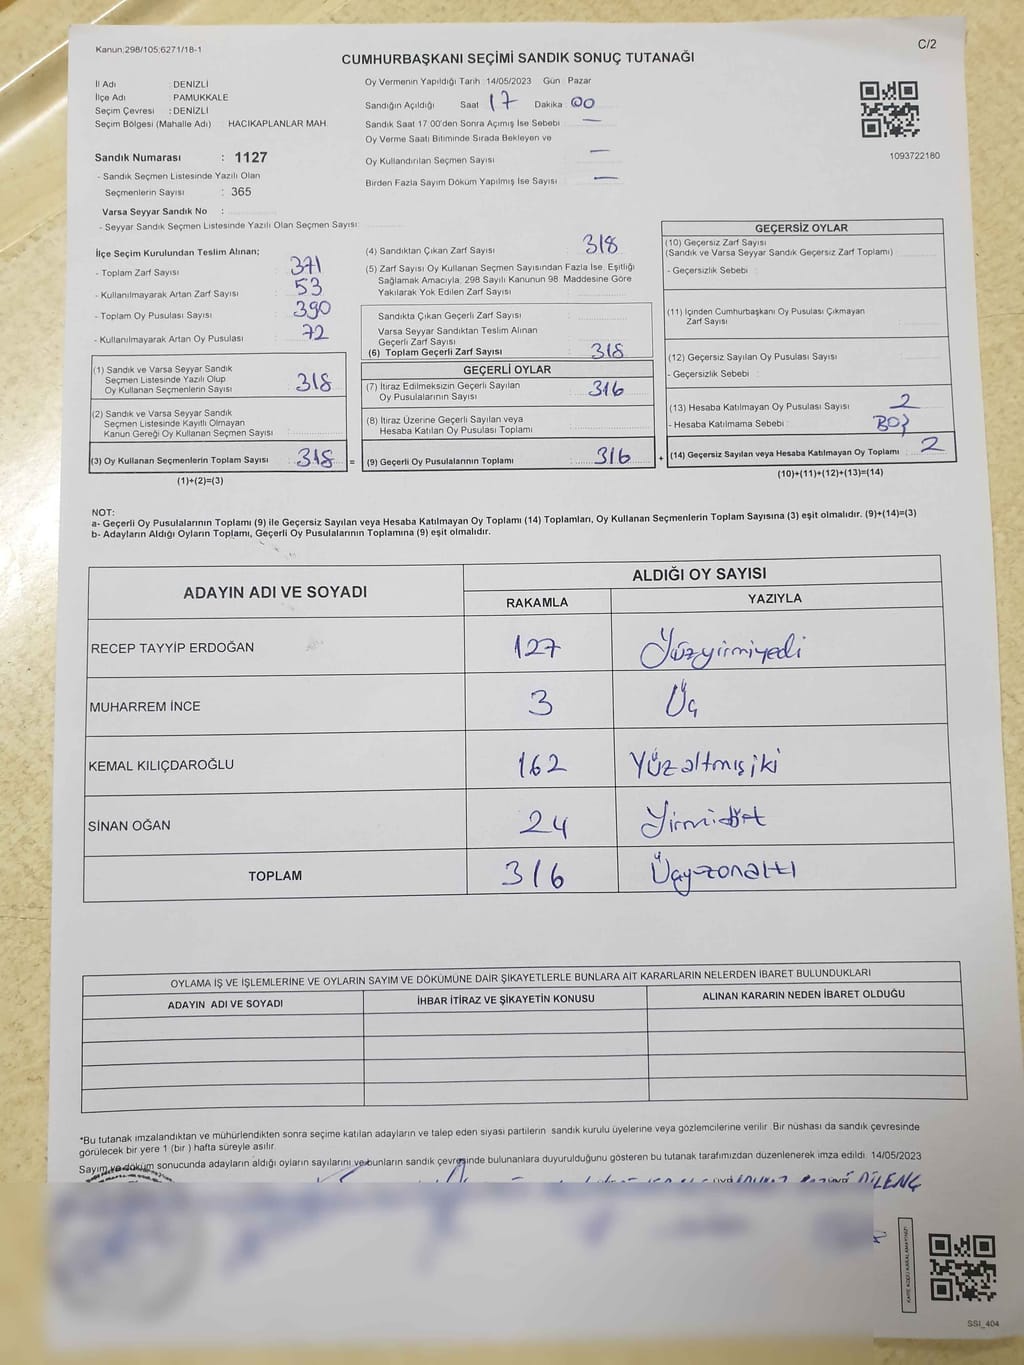 Kanun:298/105;6271/18-1
C/2
CUMHURBAŞKANI SEÇİMİ SANDIK SONUÇ TUTANAĞI
İl Adı : DENİZLİ
İlçe Adı : PAMUKKALE
Seçim Çevresi : DENİZLİ
Seçim Bölgesi (Mahalle Adı) : HACIKAPLANLAR MAH.
Sandık Numarası : 1127
- Sandık Seçmen Listesinde Yazılı Olan
Seçmenlerin Sayısı : 365
Varsa Seyyar Sandık No :
- Seyyar Sandık Seçmen Listesinde Yazılı Olan Seçmen Sayısı:
Oy Vermenin Yapıldığı Tarih :14/05/2023 Gün : Pazar
Sandığın Açıldığı Saat 17 Dakika 00
Sandık Saat 17:00'den Sonra Açımış İse Sebebi : —
Oy Verme Saati Bitiminde Sırada Bekleyen ve
Oy Kullandırılan Seçmen Sayısı : —
Birden Fazla Sayım Döküm Yapılmış İse Sayısı : —
1093722180
İlçe Seçim Kurulundan Teslim Alınan;
- Toplam Zarf Sayısı : 371
- Kullanılmayarak Artan Zarf Sayısı : 53
- Toplam Oy Pusulası Sayısı : 390
- Kullanılmayarak Artan Oy Pusulası : 72
(1) Sandık ve Varsa Seyyar Sandık
Seçmen Listesinde Yazılı Olup
Oy Kullanan Seçmenlerin Sayısı : 318
(2) Sandık ve Varsa Seyyar Sandık
Seçmen Listesinde Kayıtlı Olmayan
Kanun Gereği Oy Kullanan Seçmen Sayısı :
(3) Oy Kullanan Seçmenlerin Toplam Sayısı : 318 =
(1)+(2)=(3)
(4) Sandıktan Çıkan Zarf Sayısı : 318
(5) Zarf Sayısı Oy Kullanan Seçmen Sayısından Fazla İse, Eşitliği
Sağlamak Amacıyla; 298 Sayılı Kanunun 98. Maddesine Göre
Yakılarak Yok Edilen Zarf Sayısı :
Sandıkta Çıkan Geçerli Zarf Sayısı :
Varsa Seyyar Sandıktan Teslim Alınan
Geçerli Zarf Sayısı :
(6) Toplam Geçerli Zarf Sayısı : 318
GEÇERLİ OYLAR
(7) İtiraz Edilmeksizin Geçerli Sayılan
Oy Pusulalarının Sayısı : 316
(8) İtiraz Üzerine Geçerli Sayılan veya
Hesaba Katılan Oy Pusulası Toplamı :
(9) Geçerli Oy Pusulalarının Toplamı : 316 +
GEÇERSİZ OYLAR
(10) Geçersiz Zarf Sayısı
(Sandık ve Varsa Seyyar Sandık Geçersiz Zarf Toplamı) :
- Geçersizlik Sebebi :
(11) İçinden Cumhurbaşkanı Oy Pusulası Çıkmayan
Zarf Sayısı :
(12) Geçersiz Sayılan Oy Pusulası Sayısı :
- Geçersizlik Sebebi :
(13) Hesaba Katılmayan Oy Pusulası Sayısı : 2
- Hesaba Katılmama Sebebi : BOŞ
(14) Geçersiz Sayılan veya Hesaba Katılmayan Oy Toplamı : 2
(10)+(11)+(12)+(13)=(14)
NOT:
a- Geçerli Oy Pusulalarının Toplamı (9) ile Geçersiz Sayılan veya Hesaba Katılmayan Oy Toplamı (14) Toplamları, Oy Kullanan Seçmenlerin Toplam Sayısına (3) eşit olmalıdır. (9)+(14)=(3)
b- Adayların Aldığı Oyların Toplamı, Geçerli Oy Pusulalarının Toplamına (9) eşit olmalıdır.
ADAYIN ADI VE SOYADI
ALDIĞI OY SAYISI
RAKAMLA YAZIYLA
RECEP TAYYİP ERDOĞAN 127 Yüzyirmiyedi
MUHARREM İNCE 3 Üç
KEMAL KILIÇDAROĞLU 162 Yüzaltmışiki
SİNAN OĞAN 24 Yirmidört
TOPLAM 316 Üçyüzonaltı
OYLAMA İŞ VE İŞLEMLERİNE VE OYLARIN SAYIM VE DÖKÜMÜNE DAİR ŞİKAYETLERLE BUNLARA AİT KARARLARIN NELERDEN İBARET BULUNDUKLARI
ADAYIN ADI VE SOYADI İHBAR İTİRAZ VE ŞİKAYETİN KONUSU ALINAN KARARIN NEDEN İBARET OLDUĞU
*Bu tutanak imzalandıktan ve mühürlendikten sonra seçime katılan adayların ve talep eden siyasi partilerin sandık kurulu üyelerine veya gözlemcilerine verilir. Bir nüshası da sandık çevresinde
görülecek bir yere 1 (bir) hafta süreyle asılır.
Sayım ve döküm sonucunda adayların aldığı oyların sayılarını ve bunların sandık çevresinde bulunanlara duyurulduğunu gösteren bu tutanak tarafımızdan düzenlenerek imza edildi. 14/05/2023
DİLENÇ
SSİ_404